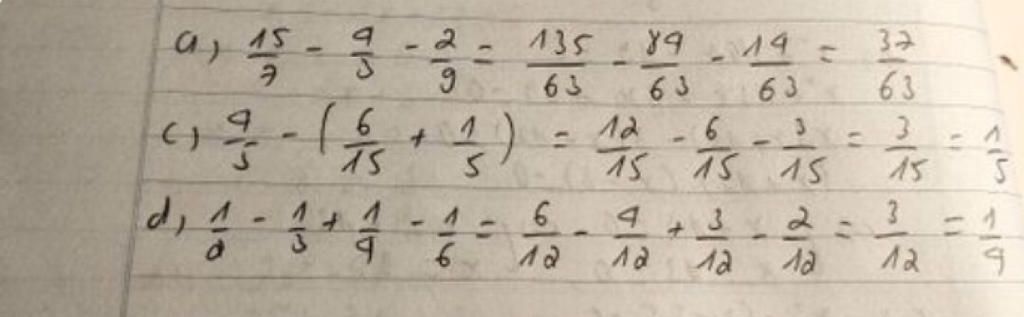 a) 15/7 - 4/3 - 2/9 = 135/63 - 84/63 - 14/63 = 37/63
c) 4/5 - (6/15 + 1/5) = 12/15 - 6/15 - 3/15 = 3/15 = 1/5
d) 1/2 - 1/3 + 1/4 - 1/6 = 6/12 - 4/12 + 3/12 - 2/12 = 3/12 = 1/4